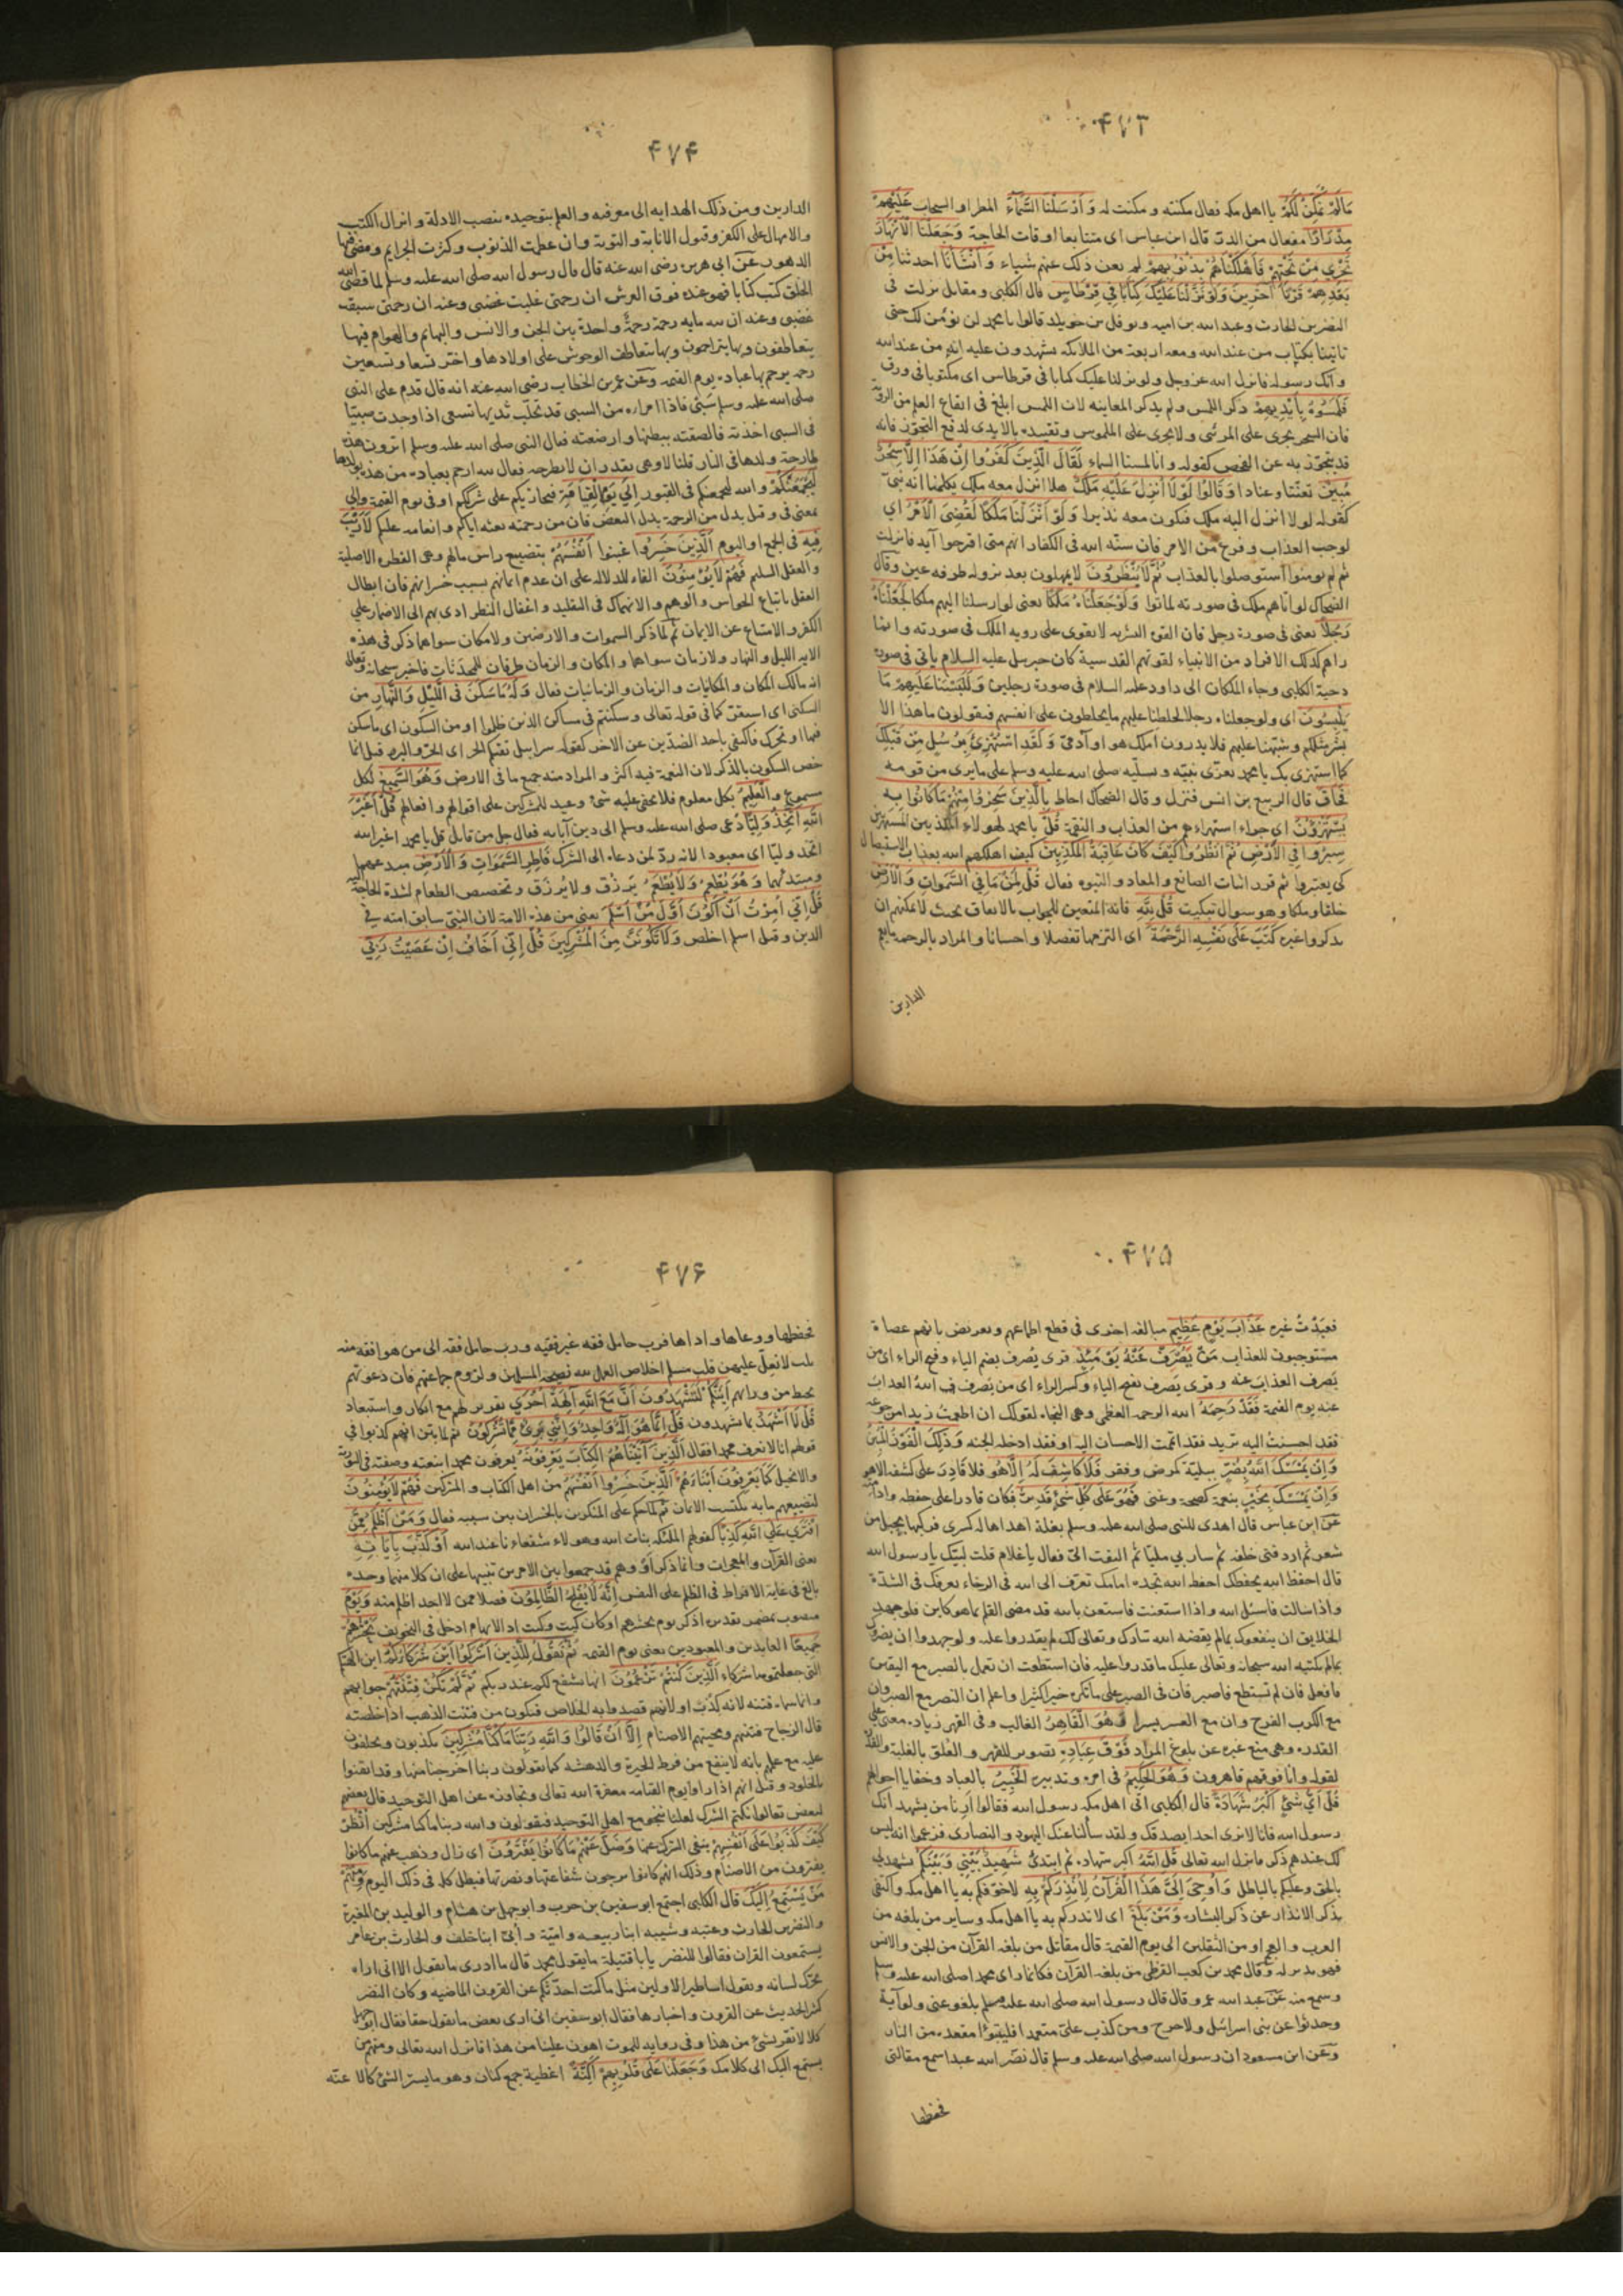 ۴۷۳
مَالَمْ نُمَكِّنْ لَكُمْ يا اهل مكه فعال مكنته و مكنت له وَاَرْسَلْنَا السَّمَآءَ المطر او السحاب عَلَيْهِمْ
مِدْرَارًا مفعال من الدر قال ابن عباس اى متتابعا اوقات الحاجة وَجَعَلْنَا الْاَنْهَارَ
تَجْرِى مِنْ تَحْتِهِمْ فَاَهْلَكْنَاهُمْ بِذُنُوبِهِمْ لم يغن ذلك عنهم شياء وَاَنْشَأْنَا احدثنا مِنْ
بَعْدِهِمْ قَرْنًا آخَرِينَ وَلَوْ نَزَّلْنَا عَلَيْكَ كِتَابًا فِى قِرْطَاسٍ قال الكلبى و مقاتل نزلت فى
النضر بن الحارث وعبد الله بن اميه و نوفل بن خويلد قالوا يا محمد لن نؤمن لك حتى
تاتينا بكتاب من عند الله ومعه اربعة من الملائكه يشهدون عليه انه من عند الله
وانك رسوله فانزل الله عز وجل ولو نزلنا عليك كتابا فى قرطاس اى مكتوبا فى ورق
فَلَمَسُوهُ بِاَيْدِيهِمْ ذكر اللمس ولم يذكر المعاينه لان اللمس ابلغ فى ايقاع العلم من الروية
فان السحر يجرى على المرئى ولا يجرى على الملموس وتقييده بالايدى لدفع التجوز فانه
قد يتجوز به عن الفحص كقوله وانا لمسنا السماء لَقَالَ الَّذِينَ كَفَرُوا اِنْ هَذَا اِلَّا سِحْرٌ
مُبِينٌ تعنتا وعنادا وَقَالُوا لَوْلَا اُنْزِلَ عَلَيْهِ مَلَكٌ هلا انزل معه ملك يكلمنا انه نبى
كقوله لولا انزل اليه ملك فيكون معه نذيرا وَلَوْ اَنْزَلْنَا مَلَكًا لَقُضِىَ الْاَمْرُ اى
لوجب العذاب وفرغ من الامر فان سنة الله فى الكفار انهم متى اقترحوا آية فانزلت
ثم لم يومنوا استوصلوا بالعذاب ثُمَّ لَا يُنْظَرُونَ لا يمهلون بعد نزوله طرفه عين وقال
الضحاك لو اتاهم ملك فى صورته لماتوا وَلَوْ جَعَلْنَاهُ مَلَكًا يعنى لو ارسلنا اليهم ملكا لَجَعَلْنَاهُ
رَجُلًا يعنى فى صورة رجل فان القوه البشريه لا تقوى على رويه الملك فى صورته وانما
راهم كذلك الافراد من الانبياء لقوتهم القدسية كان جبرييل عليه السلام ياتى فى صورة
دحية الكلبى وجاء الملكان الى داود عليه السلام فى صورة رجلين وَلَلَبَسْنَا عَلَيْهِمْ مَا
يَلْبِسُونَ اى ولو جعلناه رجلا لخلطنا عليهم ما يخلطون على انفسهم فيقولون ما هذا الا
بشر مثلكم وشبهنا عليهم فلا يدرون املك هو او آدمى وَلَقَدِ اسْتُهْزِئَ بِرُسُلٍ مِنْ قَبْلِكَ
كما استهزى بك يا محمد يعزى نبيه ويسليه صلى الله عليه وسلم على ما يرى من قومه
فَحَاقَ قال الربيع بن انس فنزل و قال الضحاك احاط بِالَّذِينَ سَخِرُوا مِنْهُمْ مَا كَانُوا بِهِ
يَسْتَهْزِؤُنَ اى جزاء استهزاءهم من العذاب والنقمة قُلْ يا محمد لهولاء المكذبين المستهزئين
سِيرُوا فِى الْاَرْضِ ثُمَّ انْظُرُوا كَيْفَ كَانَ عَاقِبَةُ الْمُكَذِّبِينَ كيف اهلكهم الله بعذاب الاستيصال
كى يعتبروا ثم قرر اثبات الصانع والمعاد والنبوه فقال قُلْ لِمَنْ مَا فِى السَّمٰوَاتِ وَالْاَرْضِ
خلقا وملكا وهو سوال تبكيت قُلْ لِلّٰهِ فانه المتعين للجواب بالاتفاق بحيث لا يمكنهم ان
يذكروا غيره كَتَبَ عَلَى نَفْسِهِ الرَّحْمَةَ اى التزمها تفضلا واحسانا والمراد بالرحمه ما يعم
الدارين
۴۷۴
الدارين ومن ذلك الهدايه الى معرفته والعلم بتوحيده بنصب الادلة وانزال الكتب
والامهال على الكفر وقبول الانابة والتوبة وان عظمت الذنوب وكثرت الجرايم ومضى فيها
الدهور عن ابى هريره رضى الله عنه قال قال رسول الله صلى الله عليه وسلم لما قضى الله
الخلق كتب كتابا فهو عنده فوق العرش ان رحمتى غلبت غضبى وعنه ان رحمتى سبقت
غضبى وعنه ان لله مايه رحمة رحمةً واحدة بين الجن والانس والبهائم والهوام فبها
يتعاطفون وبها يتراحمون وبها يتعاطف الوحوش على اولادها واخر تسعا وتسعين
رحمه يرحم بها عباده يوم القيمه وعن عمر بن الخطاب رضى الله عنه انه قال قدم على النبى
صلى الله عليه وسلم سَبْىٌ فاذا امراه من السبى قد تحلب ثديها تسعى اذا وجدت صبيا
فى السبى اخذته فالصقته ببطنها وارضعته فقال النبى صلى الله عليه وسلم اترون هذه
طارحة ولدها فى النار قلنا لا وهى تقدر ان لا تطرحه فقال لله ارحم بعباده من هذه بولدها
لَيَجْمَعَنَّكُمْ والله ليجمعنكم فى القبور اِلَى يَوْمِ الْقِيَامَةِ فيجازيكم على شرككم او فى يوم القيمة والى
بمعنى فى وقيل بدل من الرحمة بدل البعض فان من رحمته بعثه اياكم وانعامه عليكم لَا رَيْبَ
فِيهِ فى الجمع او اليوم اَلَّذِينَ خَسِرُوا غبنوا اَنْفُسَهُمْ بتضييع راس مالهم وهى الفطره الاصلية
والعقل السليم فَهُمْ لَا يُؤْمِنُونَ الفاء للدلالة على ان عدم ايمانهم بسبب خسرانهم فان ابطال
العقل باتباع الحواس والوهم والانهماك فى التقليد واغفال النظر ادى بهم الى الاصرار على
الكفر والامتناع عن الايمان ثم لما ذكر السموات والارضين ولا مكان سواهما ذكر فى هذه
الايه الليل والنهار ولا زمان سواهما والمكان والزمان ظرفان للمحدثات فاخبر سبحانه وتعالى
انه مالك المكان والمكانيات والزمان والزمانيات فقال وَلَهُ مَا سَكَنَ فِى اللَّيْلِ وَالنَّهَارِ من
السكنى اى استقر كما فى قوله تعالى وسكنتم فى مساكن الذين ظلموا او من السكون اى ما سكن
فيهما او تحرك فاكتفى باحد الضدين عن الاخر كقوله سرابيل تقيكم الحر اى الحر والبرد قيل انما
خص السكون بالذكر لان النعمة فيه اكثر والمراد منه جميع ما فى الارض وَهُوَ السَّمِيعُ لكل
مسموع والْعَلِيمُ بكل معلوم فلا يخفى عليه شئ وعيد للمشركين على اقوالهم وافعالهم قُلْ اَغَيْرَ
اللّٰهِ اَتَّخِذُ وَلِيًّا دُعى صلى الله عليه وسلم الى دين آبايه فقال جل من قايل قل يا محمد اغير الله
اتخذ وليا اى معبودا لانه ردّ لمن دعاه الى الشرك فَاطِرِ السَّمٰوَاتِ وَالْاَرْضِ مبدعهما
ومبتدئهما وَهُوَ يُطْعِمُ وَلَا يُطْعَمُ يَرزق ولا يُرزق وتخصيص الطعام لشدة الحاجة اليه
قُلْ اِنِّى اُمِرْتُ اَنْ اَكُونَ اَوَّلَ مَنْ اَسْلَمَ يعنى من هذه الامة لان النبى سابق امته فى
الدين وقيل اسلم اخلص وَلَا تَكُونَنَّ مِنَ الْمُشْرِكِينَ قُلْ اِنِّى اَخَافُ اِنْ عَصَيْتُ رَبِّى
۴۷۵
فعبدْتُ غيره عَذَابَ يَوْمٍ عَظِيمٍ مبالغه اخرى فى قطع اطماعهم وتعريض بانهم عصاة
مستوجبون للعذاب مَنْ يُصْرَفْ عَنْهُ يَوْمَئِذٍ قرى يُصرف بضم الياء وفتح الراء اى من
يُصرف العذاب عنه وقرى يَصرف بفتح الياء وكسر الراء اى من يَصرف الله العذاب
عنه يوم القيمة فَقَدْ رَحِمَهُ الله الرحمه العظمى وهى النجاة لقولك ان اطعمت زيدا من جوعه
فقد احسنت اليه تريد فقد اتممت الاحسان اليه او فقد ادخله الجنه وَذَلِكَ الْفَوْزُ الْمُبِينُ
وَاِنْ يَمْسَسْكَ اللّٰهُ بِضُرٍّ ببلية كمرض وفقر فَلَا كَاشِفَ لَهُ اِلَّا هُوَ فلا قادر على كشفه الا هو
وَاِنْ يَمْسَسْكَ بِخَيْرٍ بنعمة كصحة وغنى فَهُوَ عَلَى كُلِّ شَىْءٍ قَدِيرٌ فكان قادرا على حفظه وادامته
عن ابن عباس قال اهدى للنبى صلى الله عليه وسلم بغلة اهداها له كسرى فركبها بحبل من
شعر ثم اردفنى خلفه ثم سار بى مليا ثم التفت الىّ فقال يا غلام قلت لبيك يا رسول الله
قال احفظ الله يحفظك احفظ الله تجده امامك تعرف الى الله فى الرخاء يعرفك فى الشدة
واذا سالت فاسئل الله واذا استعنت فاستعن بالله قد مضى القلم بما هو كاين فلو جهد
الخلايق ان ينفعوك بما لم يقضه الله تبارك وتعالى لك لم يقدروا عليه ولو جهدوا ان يضروك
بما لم يكتبه الله سبحانه وتعالى عليك ما قدروا عليه فان استطعت ان تعمل بالصبر مع اليقين
فافعل فان لم تستطع فاصبر فان فى الصبر على ما تكره خيرا كثيرا واعلم ان النصر مع الصبر وان
مع الكرب الفرج وان مع العسر يسرا وَهُوَ الْقَاهِرُ الغالب وفى القهر زيادة معنى على
القدره وهى منع غيره عن بلوغ المراد فَوْقَ عِبَادِهِ تصوير للقهر والعلو بالغلبة والقدرة
لقوله وانا فوقهم قاهرون وَهُوَ الْحَكِيمُ فى امره وتدبيره الْخَبِيرُ بالعباد وخفايا احوالهم
قُلْ اَىُّ شَىْءٍ اَكْبَرُ شَهَادَةً قال الكلبى اتى اهل مكه رسول الله فقالوا اَرِنا من يشهد انك
رسول الله فانا لا نرى احدا يصدقك ولقد سألنا عنك اليهود والنصارى فزعموا انه ليس
لك عندهم ذكر فانزل الله تعالى قُلِ اللّٰهُ اكبر شهادة ثم ابتدئ شَهِيدٌ بَيْنِى وَبَيْنَكُمْ يشهد لى
بالحق وعليكم بالباطل وَاُوحِىَ اِلَىَّ هَذَا الْقُرْآنُ لِاُنْذِرَكُمْ بِهِ لاخوفكم به يا اهل مكه واكتفى
بذكر الانذار عن ذكر البشاره وَمَنْ بَلَغَ اى لانذركم به يا اهل مكه وساير من بلغه من
العرب والعجم او من الثقلين الى يوم القيمة قال مقاتل من بلغه القرآن من الجن والانس
فهو نذير له وقال محمد بن كعب القرظى من بلغه القرآن فكانما راى محمدا صلى الله عليه وسلم
وسمع منه عن عبد الله عمرو قال قال رسول الله صلى الله عليه وسلم بلغو عنى ولو آية
وحدثوا عن بنى اسرائيل ولا حرج ومن كذب علىّ متعمدا فليتبوّا مقعده من النار
وعن ابن مسعود ان رسول الله صلى الله عليه وسلم قال نضّر الله عبدا سمع مقالتى
فحفظها
۴۷۶
فحفظها ووعاها واداها فرب حامل فقه غير فقيه ورب حامل فقه الى من هو افقه منه
ثلث لا يغل عليهن قلب مسلم اخلاص العمل لله ونصيحة المسلمين ولزوم جماعتهم فان دعوتهم
يحيط من ورائهم اَئِنَّكُمْ لَتَشْهَدُونَ اَنَّ مَعَ اللّٰهِ آلِهَةً اُخْرَى تقرير لهم مع انكار واستبعاد
قُلْ لَا اَشْهَدُ بما تشهدون قُلْ اِنَّمَا هُوَ اِلٰهٌ وَاحِدٌ وَاِنَّنِى بَرِئٌ مِمَّا تُشْرِكُونَ ثم لما بين انهم كذبوا فى
قولهم انا لا نعرف محمدا فقال اَلَّذِينَ آتَيْنَاهُمُ الْكِتَابَ يَعْرِفُونَهُ يعرفون محمدا بنعته وصفته فى التورية
والانجيل كَمَا يَعْرِفُونَ اَبْنَاءَهُمْ اَلَّذِينَ خَسِرُوا اَنْفُسَهُمْ من اهل الكتاب والمشركين فَهُمْ لَا يُؤْمِنُونَ
لتضييعهم ما به يكتسب الايمان ثم لما حكم على المنكرين بالخسران بين سببه فقال وَمَنْ اَظْلَمُ مِمَّنِ
افْتَرَى عَلَى اللّٰهِ كَذِبًا كقولهم الملئكه بنات الله وهولاء شفعاءنا عند الله اَوْ كَذَّبَ بِآيَاتِهِ
يعنى القرآن والمعجزات وانما ذكر اَوْ وهم قد جمعوا بين الامرين تنبيها على ان كلا منهما وحده
بالغ فى غاية الافراط فى الظلم على النفس اِنَّهُ لَا يُفْلِحُ الظَّالِمُونَ فضلا ممن لا احد اظلم منه وَيَوْمَ
منصوب بمضمر تقديره اذكر يوم نحشرهم او كان كيت وكيت اذ الابهام ادخل فى التخويف نَحْشُرُهُمْ
جَمِيعًا العابدين والمعبودين يعنى يوم القيمه ثُمَّ نَقُولُ لِلَّذِينَ اَشْرَكُوا اَيْنَ شُرَكَاؤُكُمُ اين آلهتكم
التى جعلتموها شركاء اَلَّذِينَ كُنْتُمْ تَزْعُمُونَ انها تشفع لكم عند ربكم ثُمَّ لَمْ تَكُنْ فِتْنَتُهُمْ جوابهم
وانما سماه فتنه لانه كذب او لانهم قصدوا به الخلاص فيكون من فتنت الذهب اذا خلصته
قال الزجاج فتنتهم ومحبتهم الاصنام اِلَّا اَنْ قَالُوا وَاللّٰهِ رَبِّنَا مَا كُنَّا مُشْرِكِينَ يكذبون ويحلفون
عليه مع علمهم بانه لا ينفع من فرط الحيرة والدهشه كما يقولون ربنا اخرجنا منها وقد ايقنوا
بالخلود وقيل انهم اذا راوا يوم القيامه مغفرة الله تعالى وتجاوزه عن اهل التوحيد قال بعضهم
لبعض تعالوا نكتم الشرك لعلنا ننجو مع اهل التوحيد فيقولون والله ربنا ما كنا مشركين اُنْظُرْ
كَيْفَ كَذَبُوا عَلَى اَنْفُسِهِمْ بنفى الشرك عنها وَضَلَّ عَنْهُمْ مَا كَانُوا يَفْتَرُونَ اى زال وذهب عنهم ما كانوا
يفترون من الاصنام وذلك انهم كانوا يرجون شفاعتها ونصرتها فبطل كله فى ذلك اليوم وَمِنْهُمْ
مَنْ يَسْتَمِعُ اِلَيْكَ قال الكلبى اجتمع ابو سفين بن حرب وابو جهل بن هشام والوليد بن المغيرة
والنضر بن الحارث وعتبه وشيبه ابنا ربيعه واميّة وأبىّ ابنا خلف والحارث بن عامر
يستمعون القران فقالوا للنضر يا با قتيلة ما يقول محمد قال ما ادرى ما يقول الا انى اراه
يحرك لسانه ويقول اساطير الاولين مثل ما كنت احدثكم عن القرون الماضيه وكان النضر
كثير الحديث عن القرون واخبارها فقال ابو سفين انى ارى بعض ما يقول حقا فقال ابو جهل
كلا لا نقر بشئ من هذا وفى روايه للموت اهون علينا من هذا فانزل الله تعالى ومنهم من
يستمع اليك الى كلامك وَجَعَلْنَا عَلَى قُلُوبِهِمْ اَكِنَّةً اغطية جمع كنان وهو ما يستر الشئ كالاعنّه